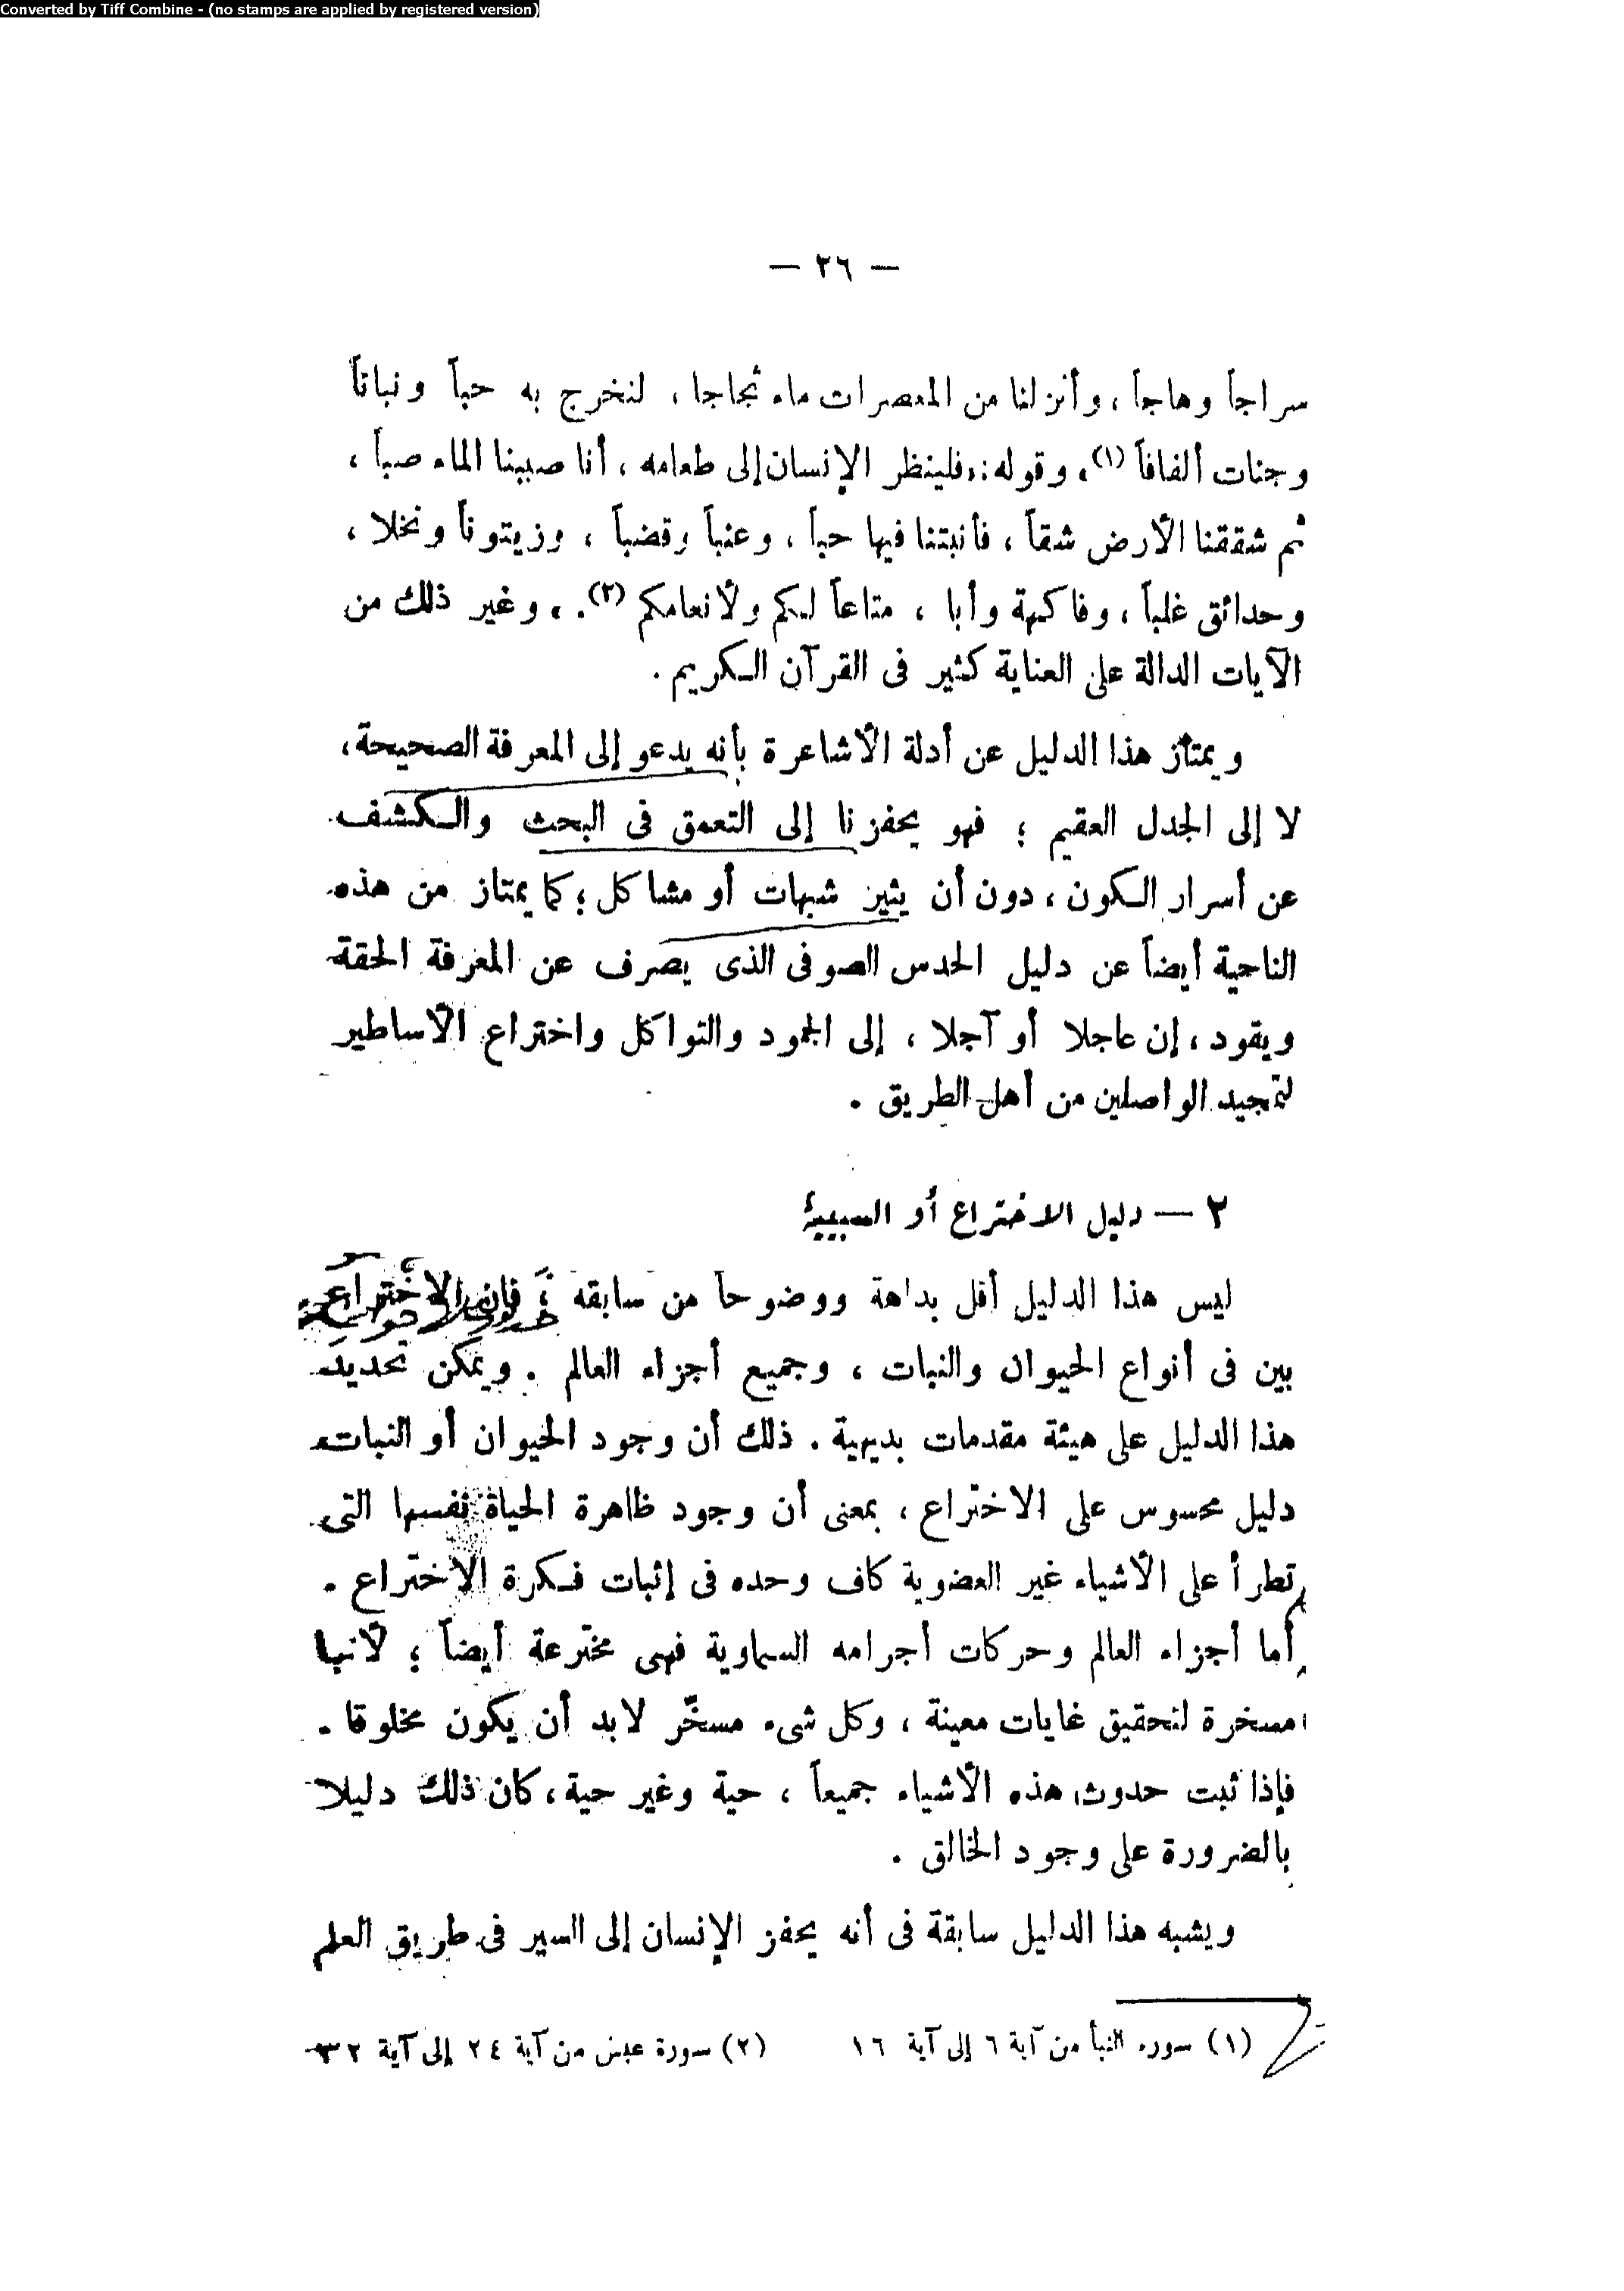 Converted by Tiff Combine - (no stamps are applied by registered version)
— ٢٦ —
سراجاً وهاجاً ، وأنزلنا من المعصرات ماء ثجاجا ، لنخرج به حباً ونباتاً
وجنات ألفافاً (١)، وقوله: «فلينظر الإنسان إلى طعامه ، أنا صببنا الماء صباً ،
ثم شققنا الأرض شقاً ، فأنبتنا فيها حباً ، وعنباً وقضباً ، وزيتوناً ونخلا ،
وحدائق غلباً ، وفاكهة وأبا ، متاعاً لكم ولأنعامكم (٢). ، وغير ذلك من
الآيات الدالة على العناية كثير فى القرآن الكريم .
ويمتاز هذا الدليل عن أدلة الأشاعرة بأنه يدعو إلى المعرفة الصحيحة ،
لا إلى الجدل العقيم ؛ فهو يحفزنا إلى التعمق فى البحث والكشف
عن أسرار الكون ، دون أن يثير شبهات أو مشاكل ؛ كما يمتاز من هذه
الناحية أيضاً عن دليل الحدس الصوفى الذى يصرف عن المعرفة الحقة
ويقود ، إن عاجلا أو آجلا ، إلى الجمود والتواكل واختراع الأساطير
لتمجيد الواصلين من أهل الطريق .
٢ — دليل الاختراع أو السببية
ليس هذا الدليل أقل بداهة ووضوحاً من سابقه ؛ فإن الاختراع
بين فى أنواع الحيوان والنبات ، وجميع أجزاء العالم . ويمكن تحديد
هذا الدليل على هيئة مقدمات بديهية . ذلك أن وجود الحيوان أو النبات
دليل محسوس على الاختراع ، بمعنى أن وجود ظاهرة الحياة نفسها التى
تطرأ على الأشياء غير العضوية كاف وحده فى إثبات فكرة الاختراع .
أما أجزاء العالم وحركات أجرامه السماوية فهى مخترعة أيضاً ؛ لأنها
مسخرة لتحقيق غايات معينة ، وكل شىء مسخَّر لابد أن يكون مخلوقا .
فإذا ثبت حدوث هذه الأشياء جميعاً ، حية وغير حية ، كان ذلك دليلا
بالضرورة على وجود الخالق .
ويشبه هذا الدليل سابقة فى أنه يحفز الإنسان إلى السير فى طريق العلم
(١) سورة النبأ من آية ٦ إلى آية ١٦ (٢) سورة عبس من آية ٢٤ إلى آية ٣٢